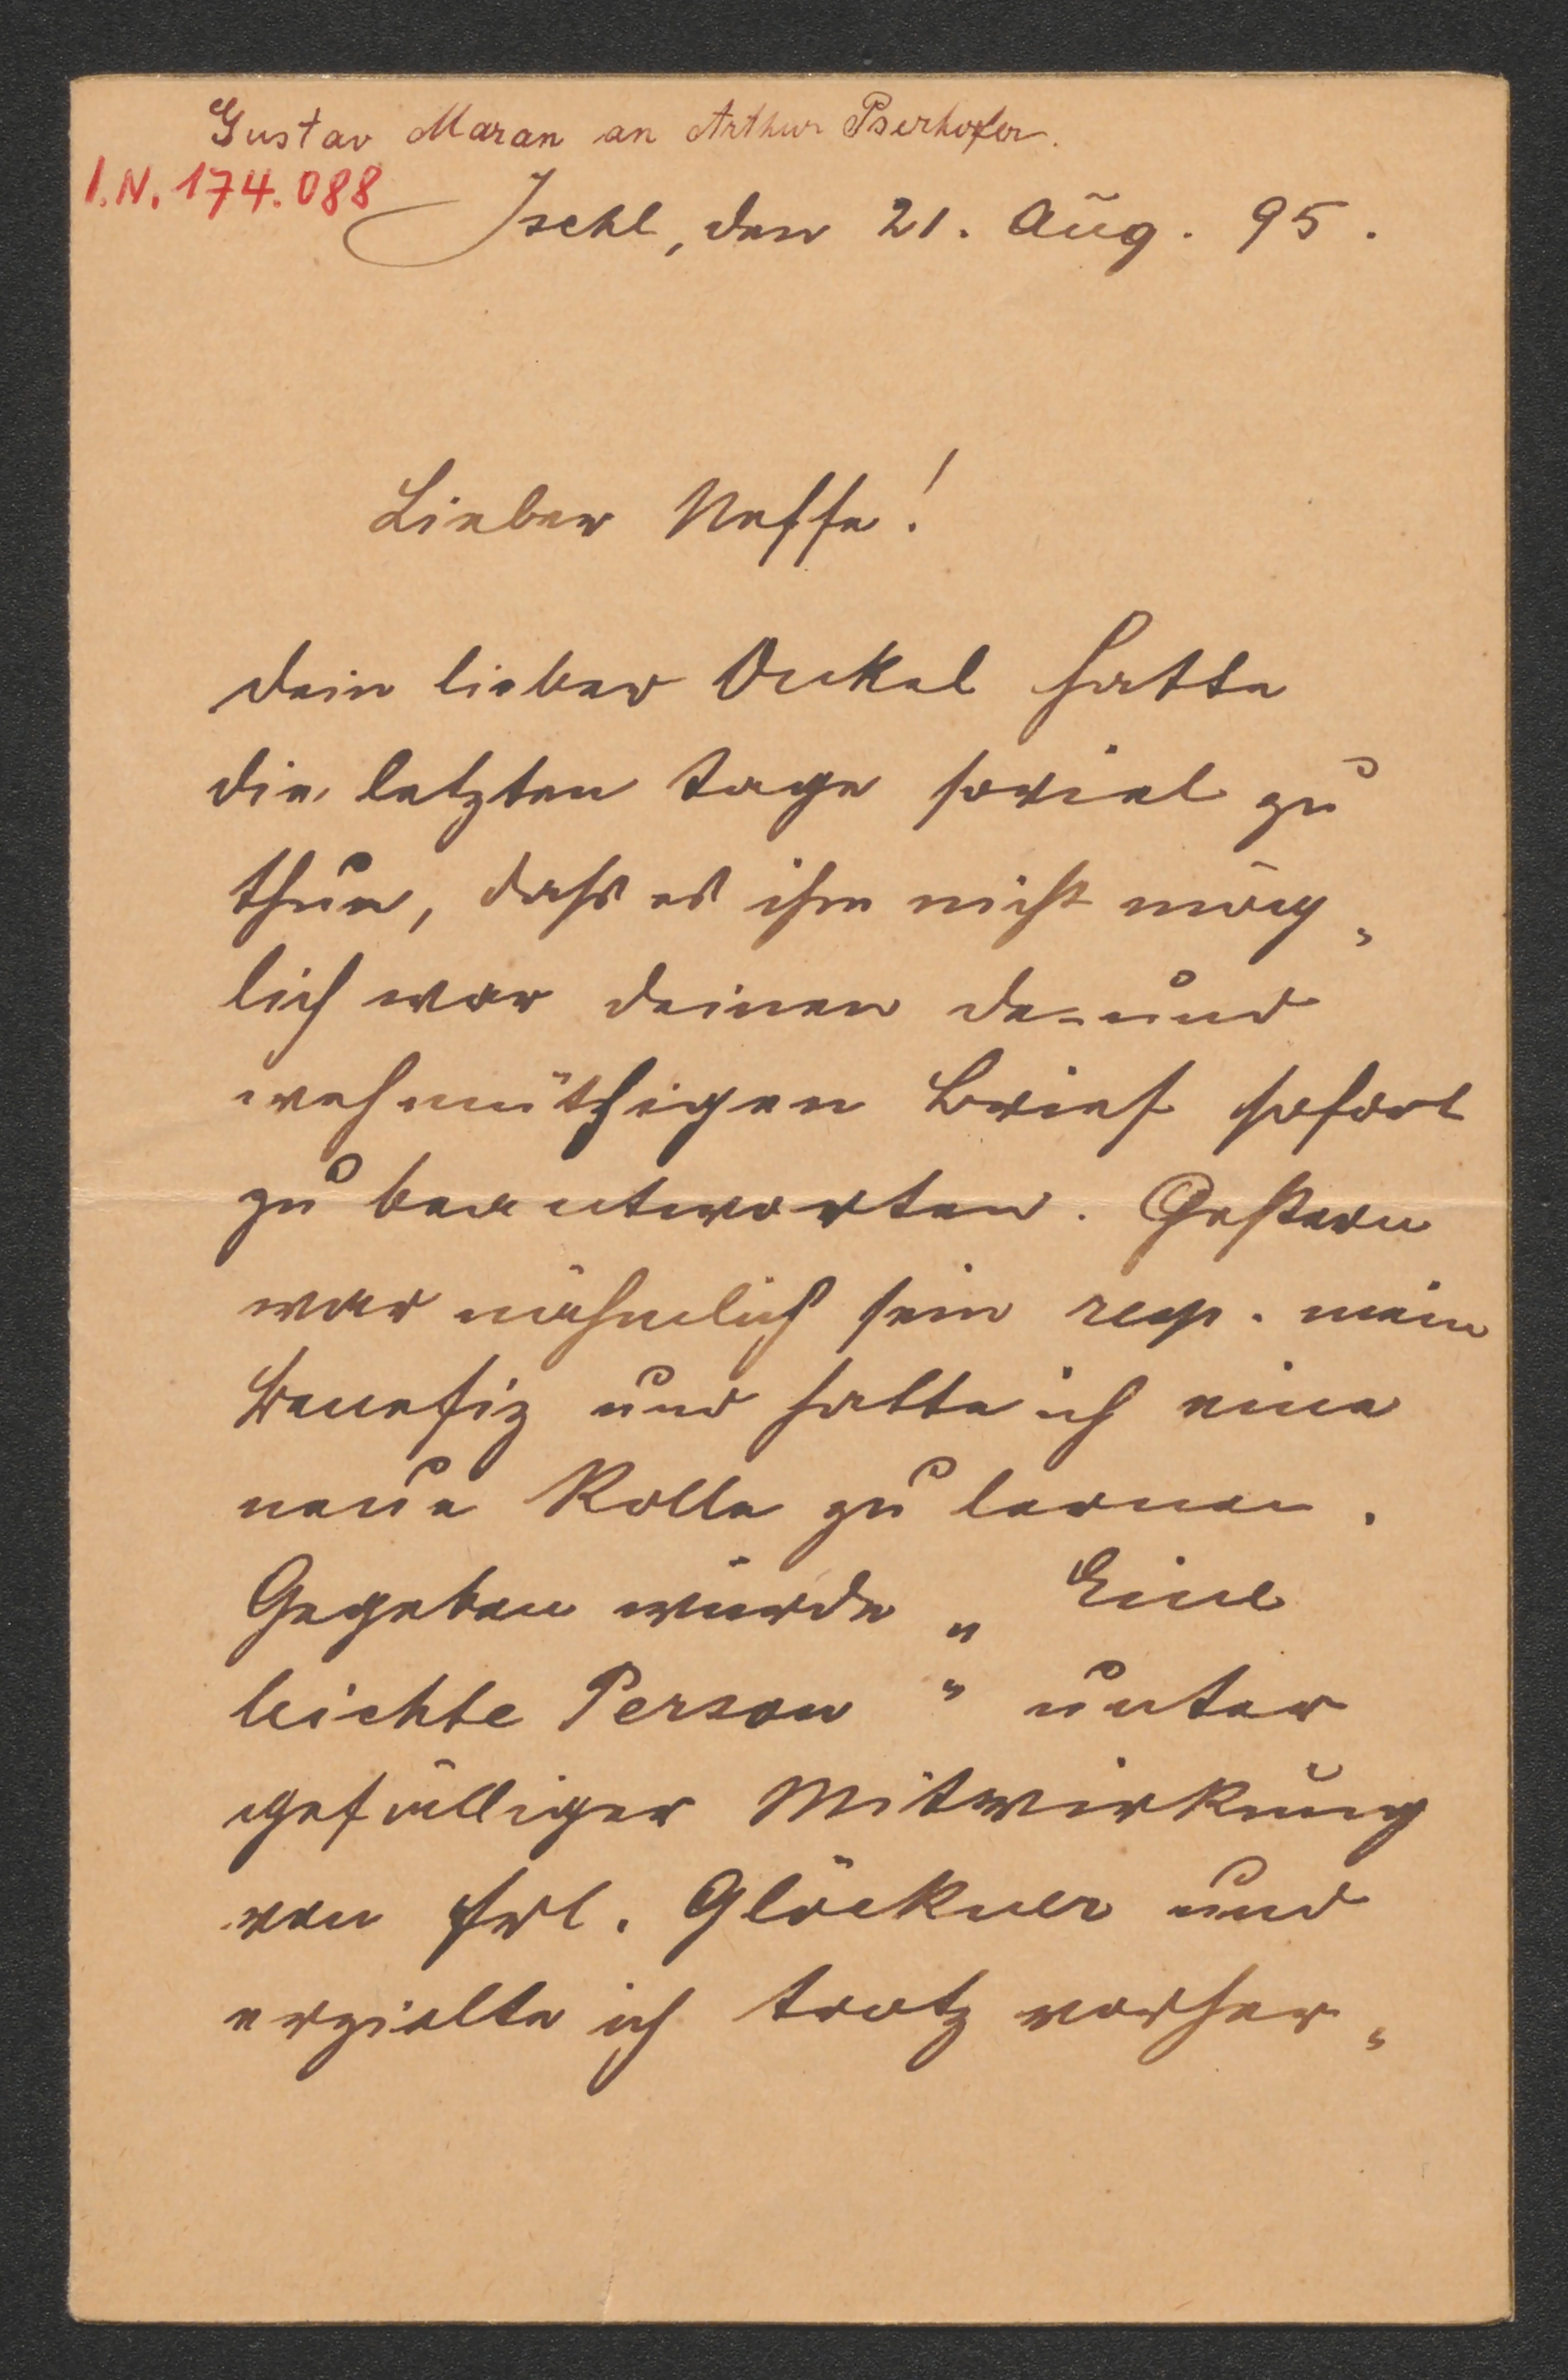 Gustav Maran an Arthur Pserhofer.
I.N. 174.088
Ischl, den 21. Aug. 95.
Lieber Neffe!
dein lieber Onkel hatte
die letzten Tage soviel zu
thun, dass es ihm nicht mög„
lich war deinen de- und
wehmüthigen Brief sofort
zu beantworten. Gestern
war nähmlich sein resp. mein
Benefiz und hatte ich eine
neue Rolle zu lernen.
Gegeben wurde „Eine
leichte Person" unter
gefälliger Mitwirkung
von Frl. Glöckner und
erzielte ich trotz vorher„